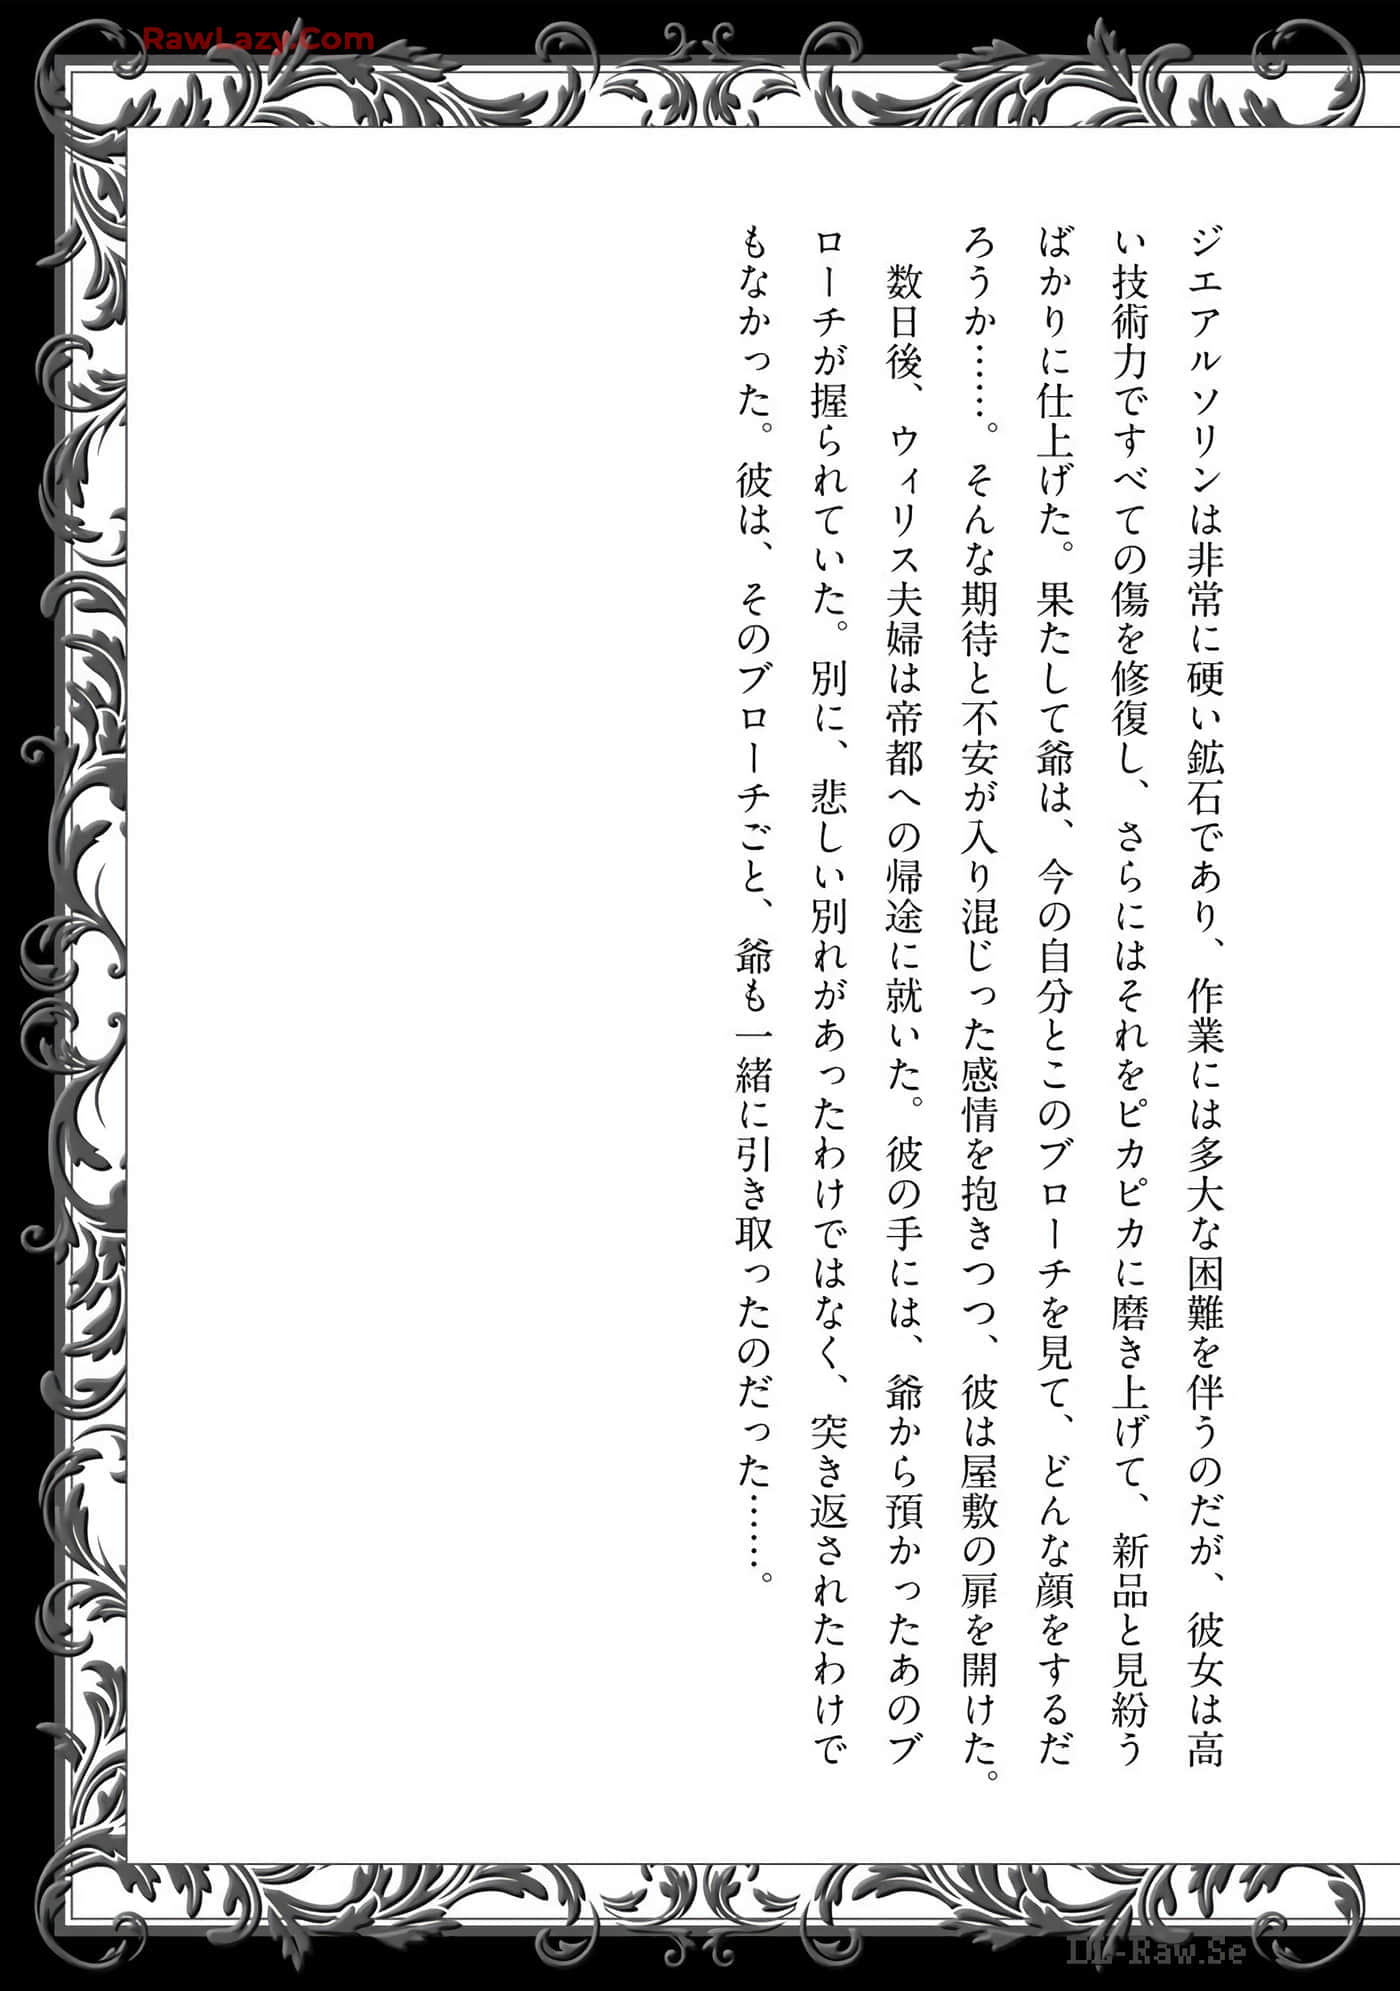 RawLazy.Com
ジエアルソリンは非常に硬い鉱石であり、作業には多大な困難を伴うのだが、彼女は高
い技術力ですべての傷を修復し、さらにはそれをピカピカに磨き上げて、新品と見紛う
ばかりに仕上げた。果たして爺は、今の自分とこのブローチを見て、どんな顔をするだ
ろうか……。そんな期待と不安が入り混じった感情を抱きつつ、彼は屋敷の扉を開けた。
　数日後、ウィリス夫婦は帝都への帰途に就いた。彼の手には、爺から預かったあのブ
ローチが握られていた。別に、悲しい別れがあったわけではなく、突き返されたわけで
もなかった。彼は、そのブローチごと、爺も一緒に引き取ったのだった……。
DL-Raw.Se